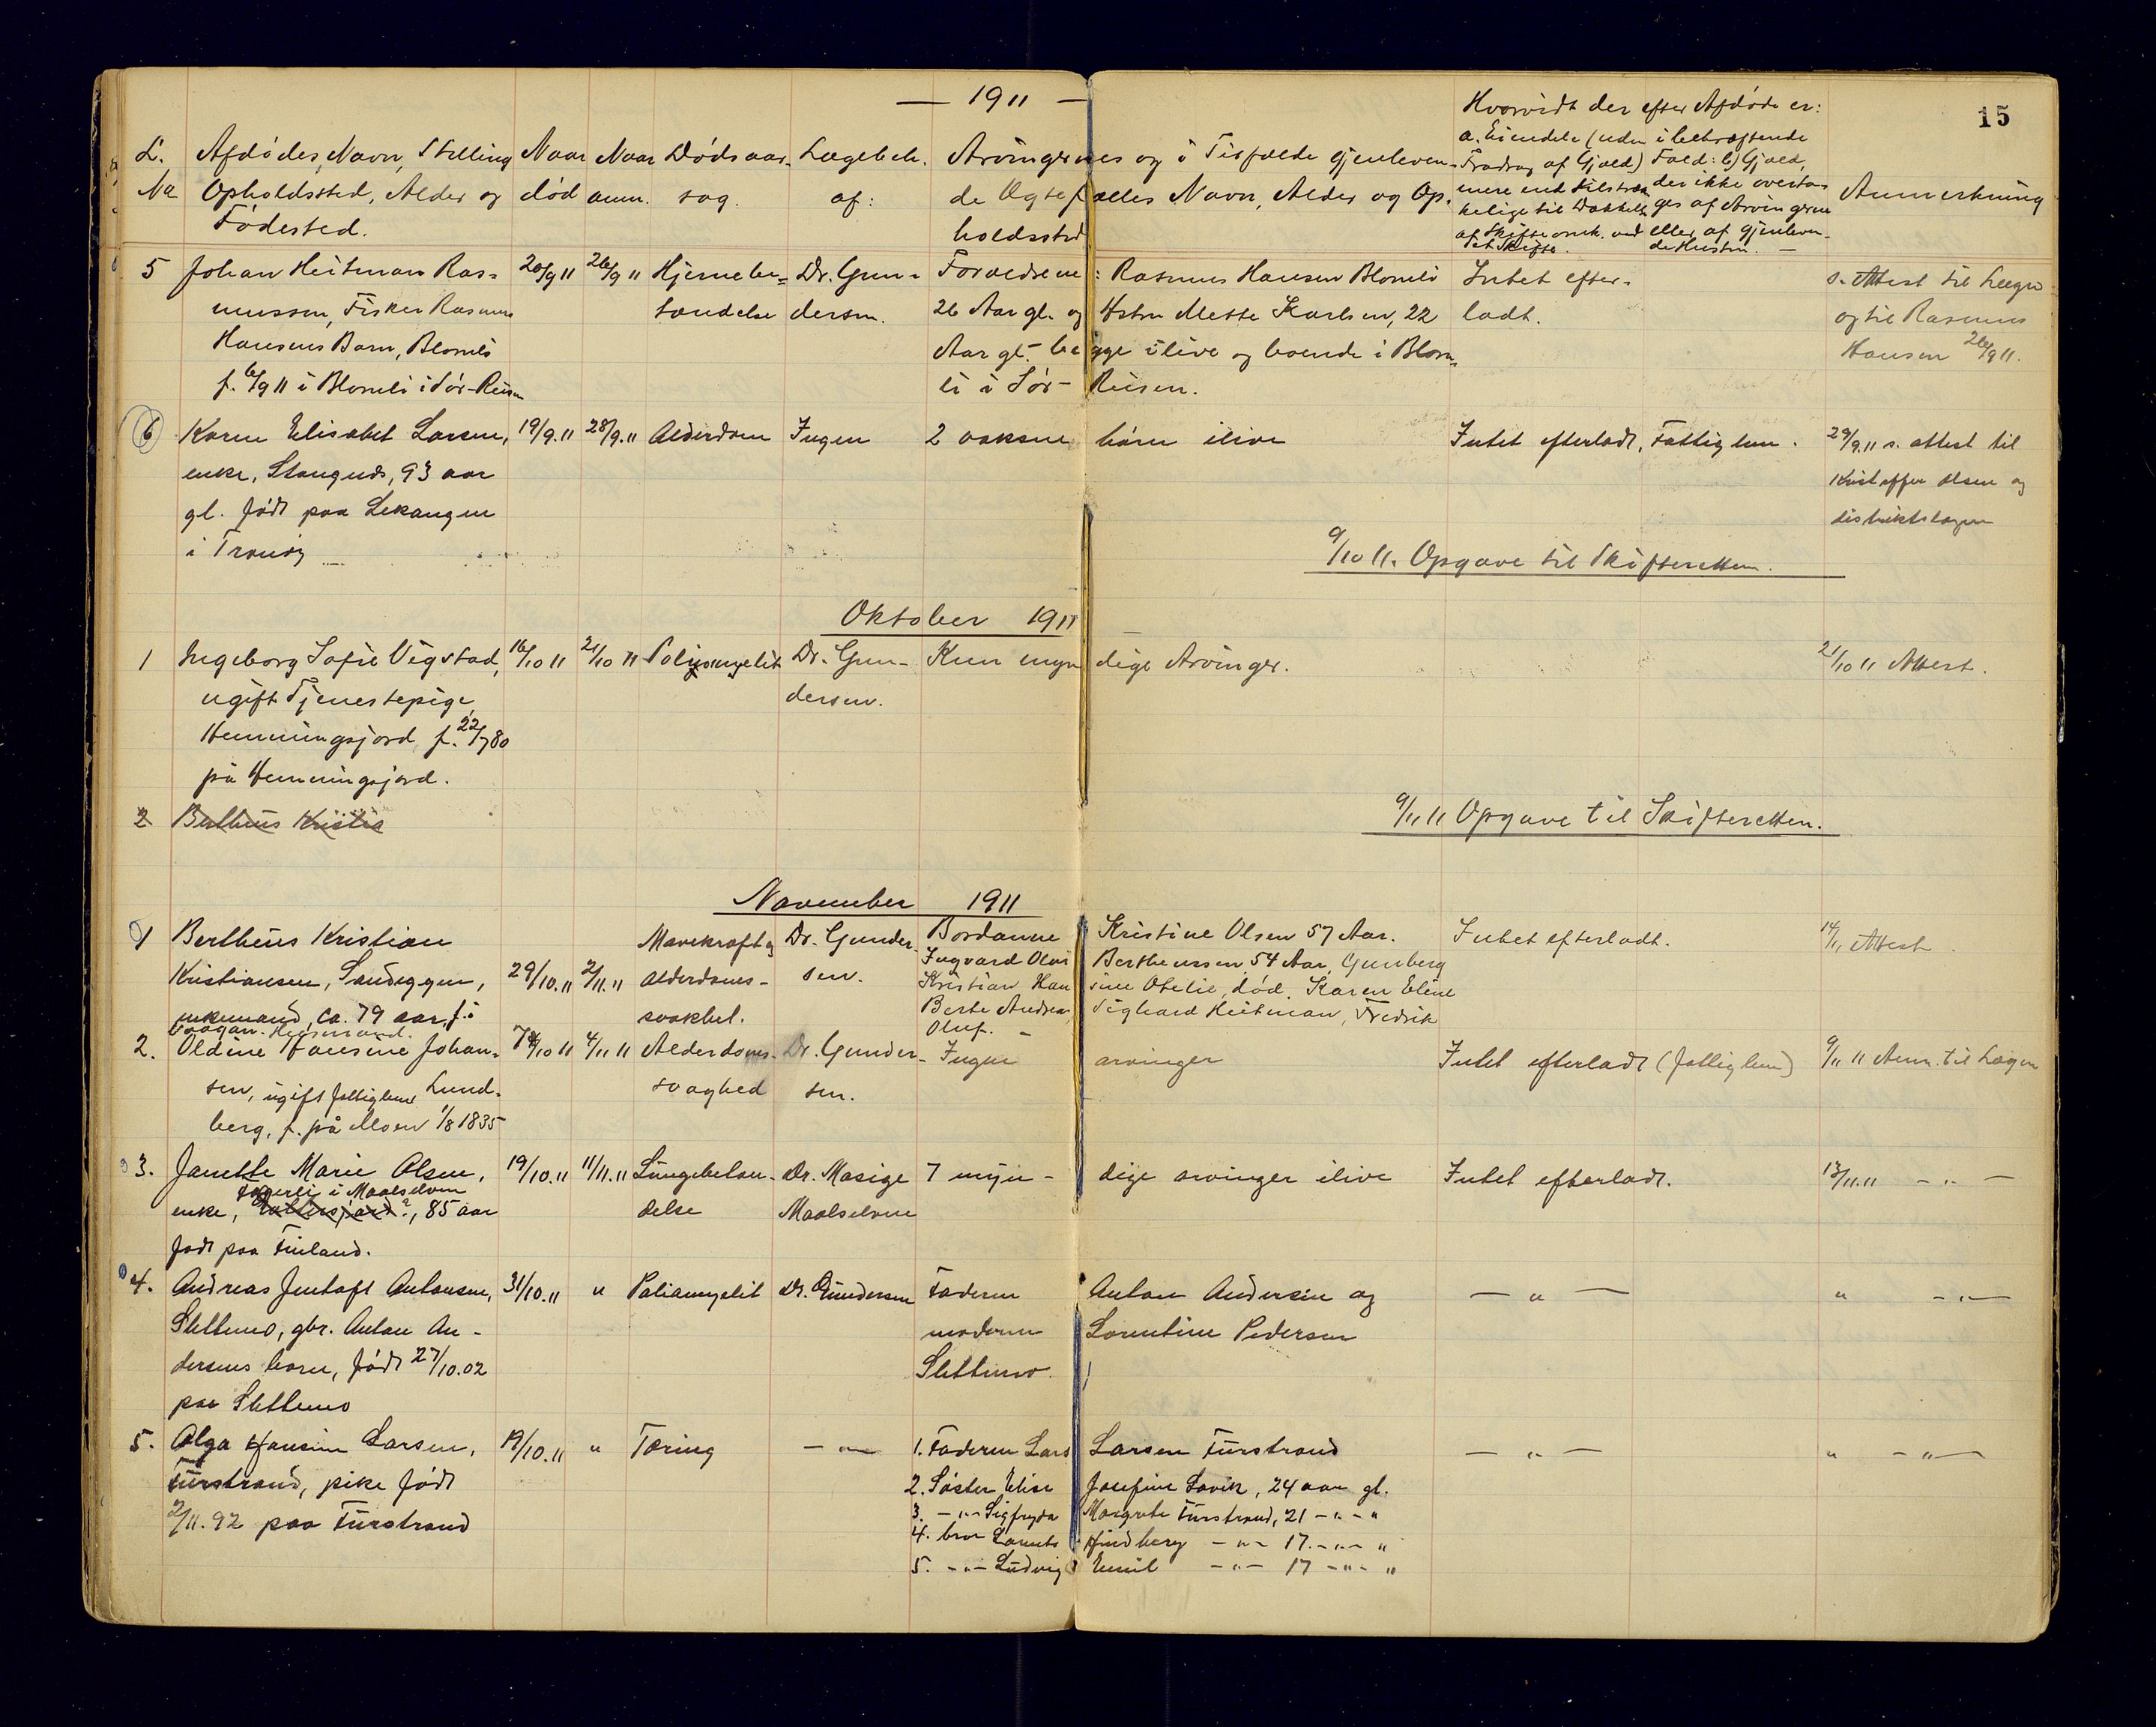 — 1911 —
15
L. No
Afdødes Navn, Stilling
Opholdssted, Alder og
Fødested.
Naar
død
Naar
anm.
Dødsaar-
sag.
Lægebeh.
af:
Arvingernes og i Tilfælde gjenleven-
de Ægtefælles Navn, Alder og Op-
holdssted
Hvorvidt der efter Afdøde er:
a. Eiendele (uden
Fradrag af Gjæld)
mere end tilstræk
kelige til Dækkelse
af Skifteomk. ved
et Skifte.
i bekræftende
Fald: b) Gjæld,
der ikke overta-
ges af Arvingerne
eller af gjenleven-
de Hustru. —
Anmerkning
5 Johan Heitman Ras- 20/9 11 26/9 11 Hjernebe- Dr. Gun- Forældrene: Rasmus Hansen Blomli Intet efter- s. Attest til Lægen
mussen, Fisker Rasmus tændelse dersen. 26 Aar gl. og Hstr. Mette Karlsen, 22 ladt. og til Rasmus
Hansens Barn, Blomli Aar gl. begge ilive og boende i Blom- Hansen 26/9 11.
f. 6/9 11 i Blomli i Sør-Reisen li i Sør-Reisen.
6 Karen Elisabet Larsen, 19/9.11 28/9.11 Alderdom Ingen 2 voksne børn ilive Intet efterladt, Fattiglem. 29/9.11 s. attest til
enke, Stangnes, 93 aar Kristoffer Olsen og
gl. født paa Lekangen distriktslægen
i Tranøy
9/10 11. Opgave til Skifteretten.
Oktober 1911
1 Ingeborg Sofie Vigstad, 16/10 11 21/10 11 Poliomyelit Dr. Gun- Kun myndige Arvinger. 21/10 11 Attest.
ugift Tjenestepige dersen.
Hemmingsjord, f. 22/7 80
på Hemmingsjord.
2 Bertheus Kristia
9/11 11 Opgave til Skifteretten.
November 1911
1 Bertheus Kristian Mavekræft og Dr. Gunder- Bordanne Kristine Olsen 57 Aar. Intet efterladt. 14/11 Attest.
Kristiansen, Sandeggen, 29/10.11 2/11.11 alderdoms- sen. Ingvard Olai Bertheussen 54 Aar, Gunberg
enkemand, ca. 79 aar, f. i svakhet. Kristian, Han sine Otelie, død. Karen Eline
Vaagan. Husmand. Berte Andrea, Sighard Heitman, Fredrik
Oluf. —
2. Oldine Hansine Johan- /10 11 4/11 11 Alderdoms- Dr. Gunder- Ingen arvinger Intet efterladt (fattiglem) 9/11 11 Anm. til Lægen
sen, ugift fattiglem Lund- svaghed sen.
berg, f. på Moen 1/8 1835
3. Janette Marie Olsen, 19/10.11 11/11.11 Lungebetæn- Dr. Masige 7 myndige arvinger ilive Intet efterladt. 13/11.11 — " —
i Maalselven
enke, 85 aar delse Maalselven
født paa Finland.
4. Andreas Jentoft Antonsen, 31/10.11 " Poliomyelit Dr. Gundersen Faderen Anton Andersen og — " — " — " —
Slettmo, gbr. Anton An- moderen Lorentine Pedersen
dersens barn, født 27/10.02 Slettmo.
paa Slettmo
5. Olga Hansine Larsen, 19/10.11 " Tæring — " — 1. Faderen Lars Larsen Furstrand — " — " — " —
Furstrand, pike født 2. Søster Elise Josefine Løvik, 24 aar gl.
2/11.92 paa Furstrand 3. — " — Sigfryda Margrete Furstrand, 21 — " — "
4. bror Lorents Hindberg — " — 17. — " — "
5. — " — Ludvig Emil — " — 17 — " — "